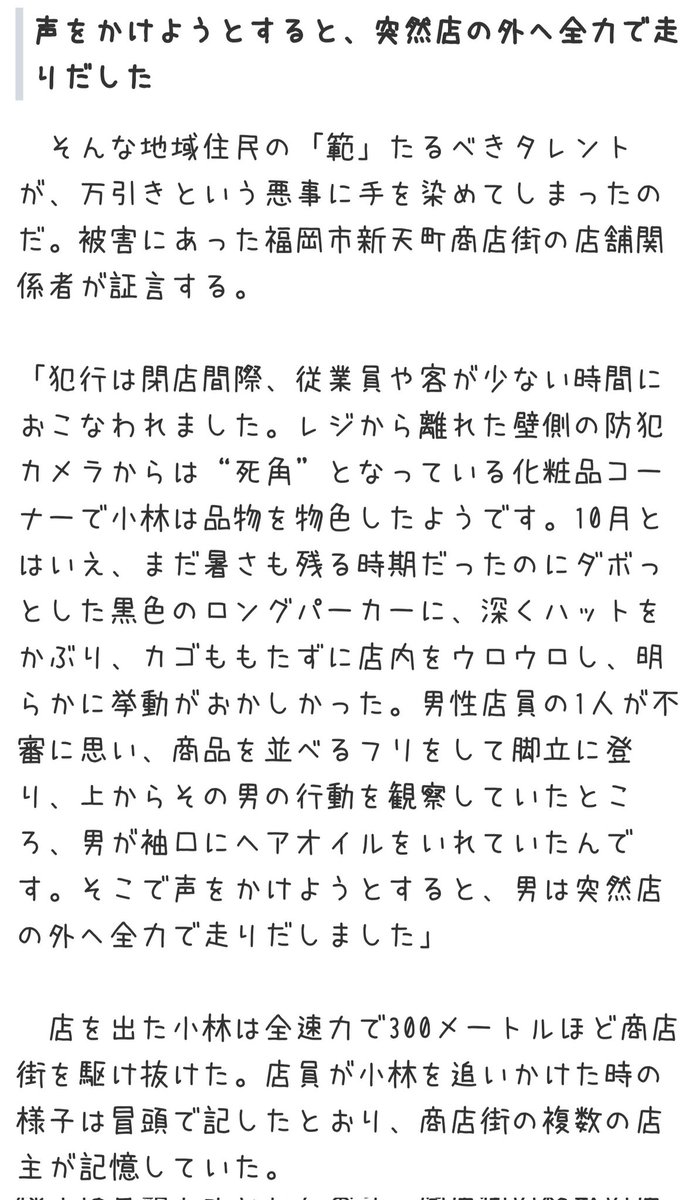 声をかけようとすると、突然店の外へ全力で走
りだした
そんな地域住民の「範」たるべきタレント
が、万引きという悪事に手を染めてしまったの
だ。被害にあった福岡市新天町商店街の店舗関
係者が証言する。
「犯行は閉店間際、従業員や客が少ない時間に
おこなわれました。レジから離れた壁側の防犯
カメラからは“死角”となっている化粧品コー
ナーで小林は品物を物色したようです。10月と
はいえ、まだ暑さも残る時期だったのにダボっ
とした黒色のロングパーカーに、深くハットを
かぶり、カゴももたずに店内をウロウロし、明
らかに挙動がおかしかった。男性店員の1人が不
審に思い、商品を並べるフリをして脚立に登
り、上からその男の行動を観察していたとこ
ろ、男が袖口にヘアオイルをいれていたんで
す。そこで声をかけようとすると、男は突然店
の外へ全力で走りだしました」
店を出た小林は全速力で300メートルほど商店
街を駆け抜けた。店員が小林を追いかけた時の
様子は冒頭で記したとおり、商店街の複数の店
主が記憶していた。